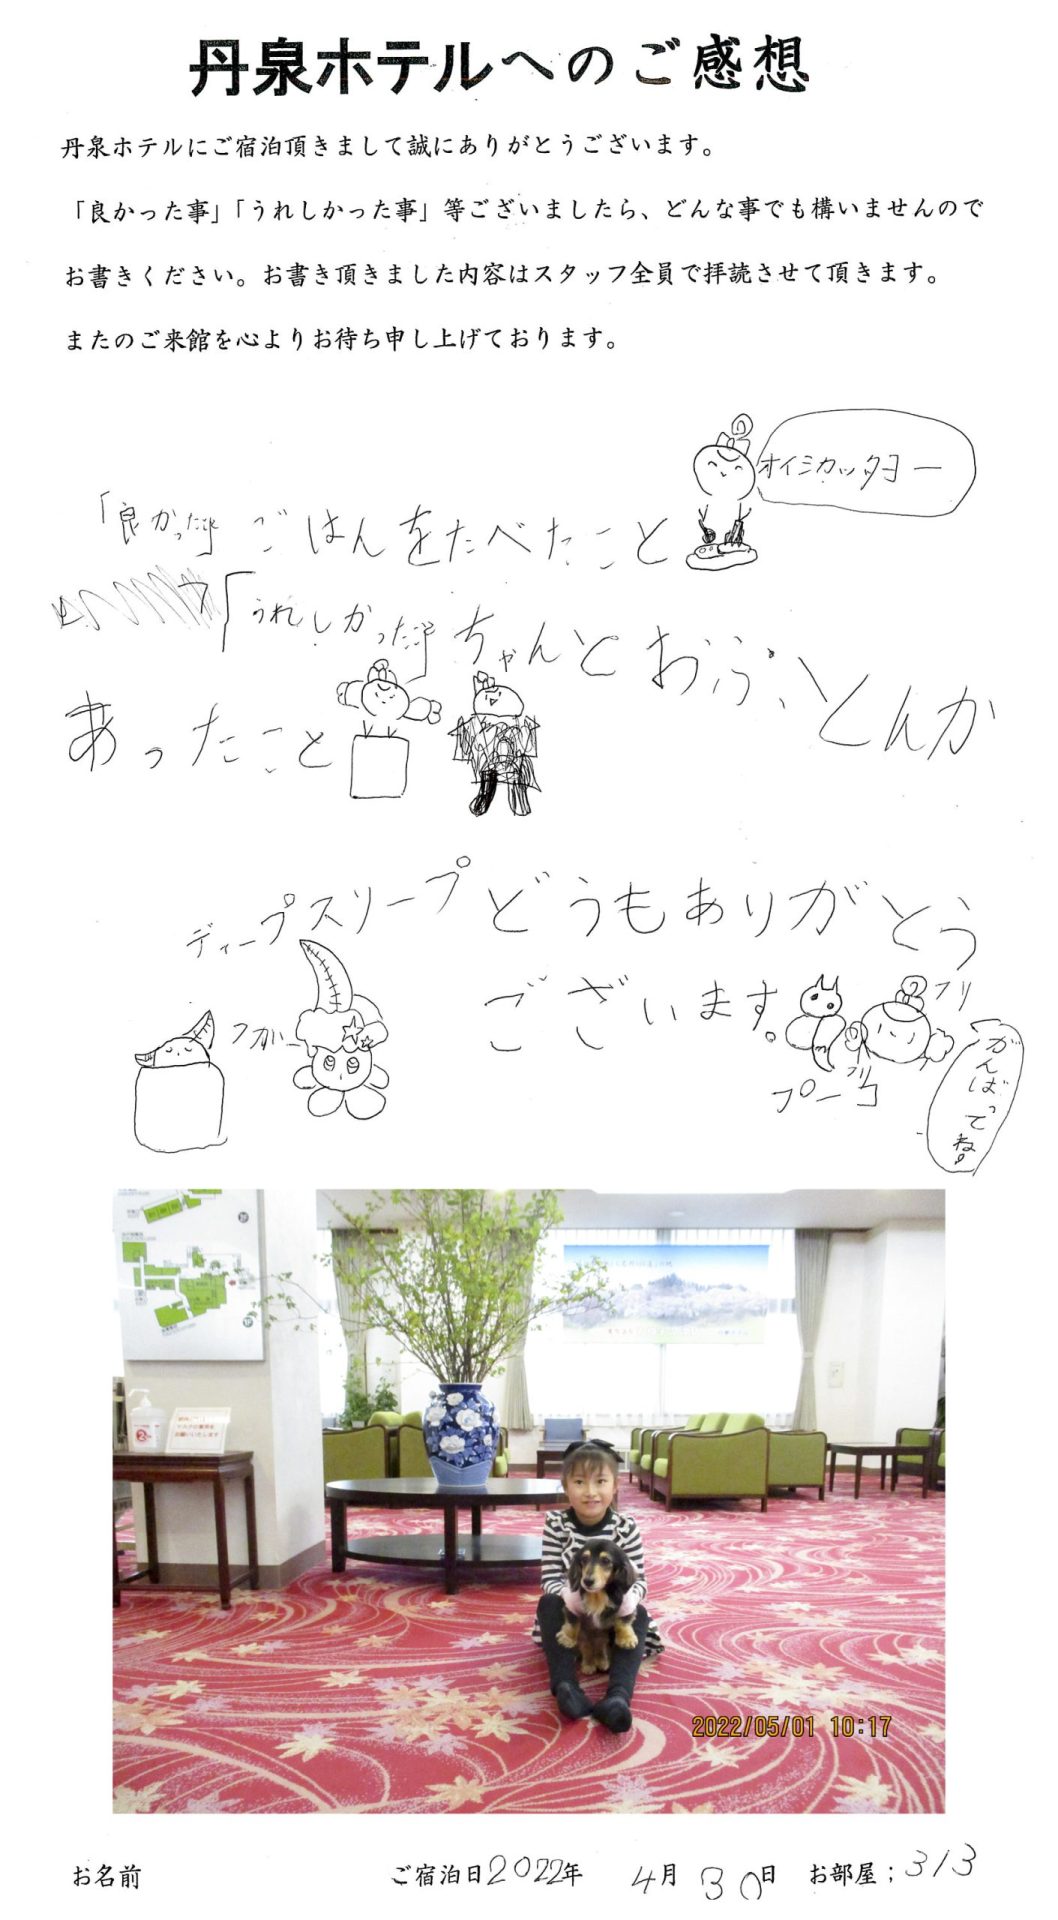 丹泉ホテルへのご感想
丹泉ホテルにご宿泊頂きまして誠にありがとうございます。
「良かった事」「うれしかった事」等ございましたら、どんな事でも構いませんので
お書きください。お書き頂きました内容はスタッフ全員で拝読させて頂きます。
またのご来館を心よりお待ち申し上げております。
オイシカッタヨー
「良かった事」ごはんをたべたこと
「うれしかった事」ちゃんとおふとんか
あったこと
ディープスリープ どうもありがとう
ございます。
フリ
フリ
プーコ
がんばってね
2022/05/01 10:17
お名前 ご宿泊日2022年 4月 30日 お部屋；313